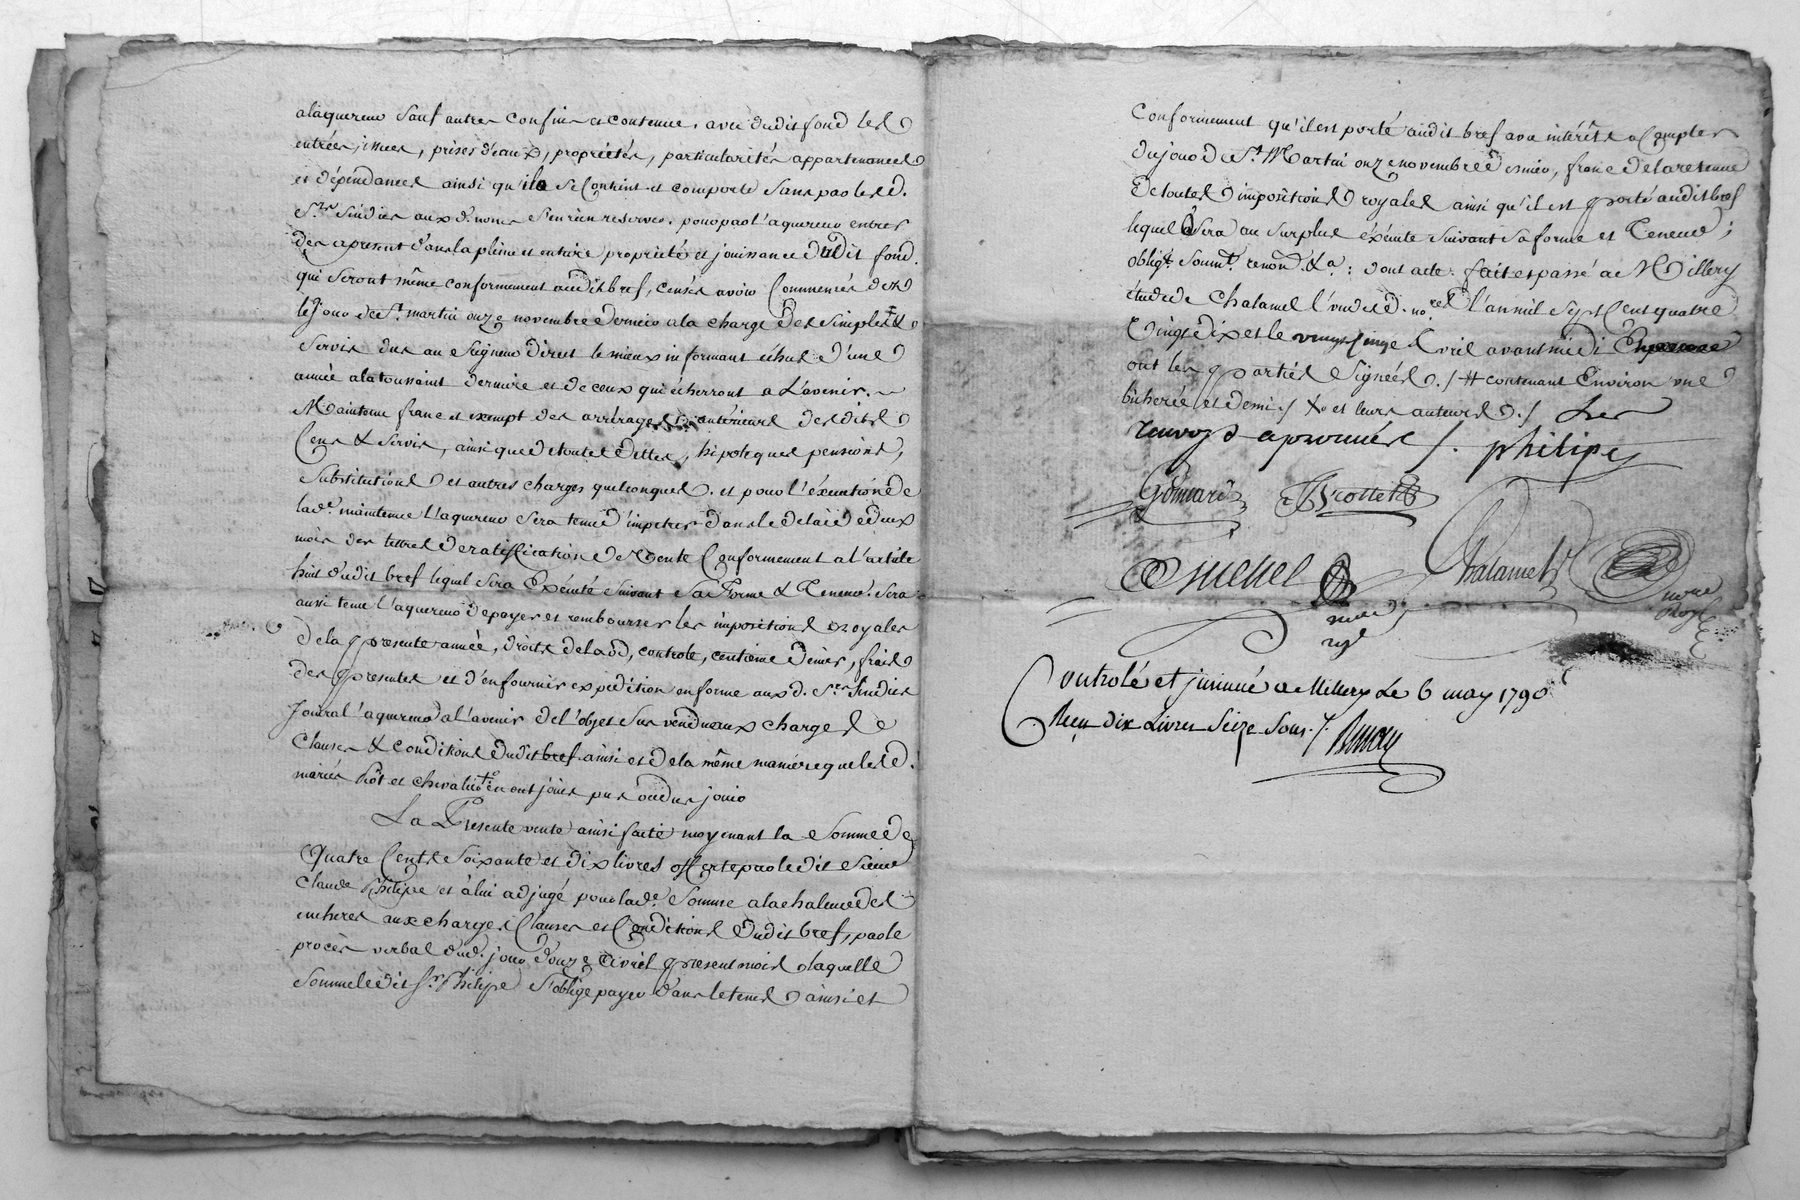 alaquereur sauf autres confins et contenue, avec dudit fond les
entrées, issues, prises d'eaux, propriétés, particularités appartenances
et dépendances ainsi qu'ils se Contient et comporte sans par lesd.
Srs Sindics auxd. noms s'en rien reserver. pour par l'aquereur entrer
des apresent dans la pleine et entiere proprieté et jouissance dudit fond
qui seront même conformement audit bref, censés avoir Commencés dez
le jour de St. martin onze novembre dernier a la charge des simples
Servis dus au Seigneur direct le mieux informant échus d'une
année a la toussaint derniere et de ceux qui écherront a L'avenir.
Maintenu franc et exempt des arrérages antérieurs desdits
Cens & Servis, ainsi que de toutes dettes, hipoteques pensions,
Substitutions et autres charges quelconques. et pour l'éxécution de
lade. maintenue L'aquereur sera tenu d'impetrer dans le delai de deux
mois des lettres de ratiffication de Vente Conformement a l'article
huit dudit bref lequel sera Exécuté suivant sa forme & Teneur. Sera
aussi tenu l'aquereur de payer et rembourser les impositions royales
de la presente année, droits de laod, controle, centieme denier, frais
des presentes et d'en fournir expedition en forme auxd. Srs Sindics
Jouira l'aquereur a l'avenir de l'objet sus vendu aux charges
Clauses & conditions dudit bref ainsi et de la même maniére que lesd.
mariés Piôt et chevalier en ont joüis pus ou dus jouir
La Presente vente ainsi faite moyenant la Somme de
Quatre Cents Soixante et dix livres offerte par le dit Sieur
Claude Philipe et à lui adjugé pour lade. Somme a la chaleur des
encheres aux charges Clauses et Conditions dudit bref, par le
procès verbal dud. jour d'onze avril present mois laquelle
Somme le dit Sr. Philipe s'oblige payer dans le tems ainsi et
Conformement qu'il est porté audit bref avec intérêts a Compter
du jour de St. Martin onze novembre dernier, franc de la retenue
de toutes impositions royales ainsi qu'il est porté audit bref
lequel sera au surplus éxécuté suivant sa forme et Teneur;
obligt. Soumt. renond. &a: dont acte: fait et passé a Millery
étude de Chalamel l'un desd. nores l'an mil Sept Cent quatre
Vingt dix et le vingt Cinq avril avant midi
ont les parties Signées ./ # contenant Environ une
bicherée et demi ./ X et leurs auteurs ./ Les
renvoys aprouvés /. philipe
Gonnard Brottet
Michel Chalamel
nore
royl
notre
Royl
Controlé et jnsinué a Millery Le 6 may 1790
Reçu dix Livres Seize Sous ./.